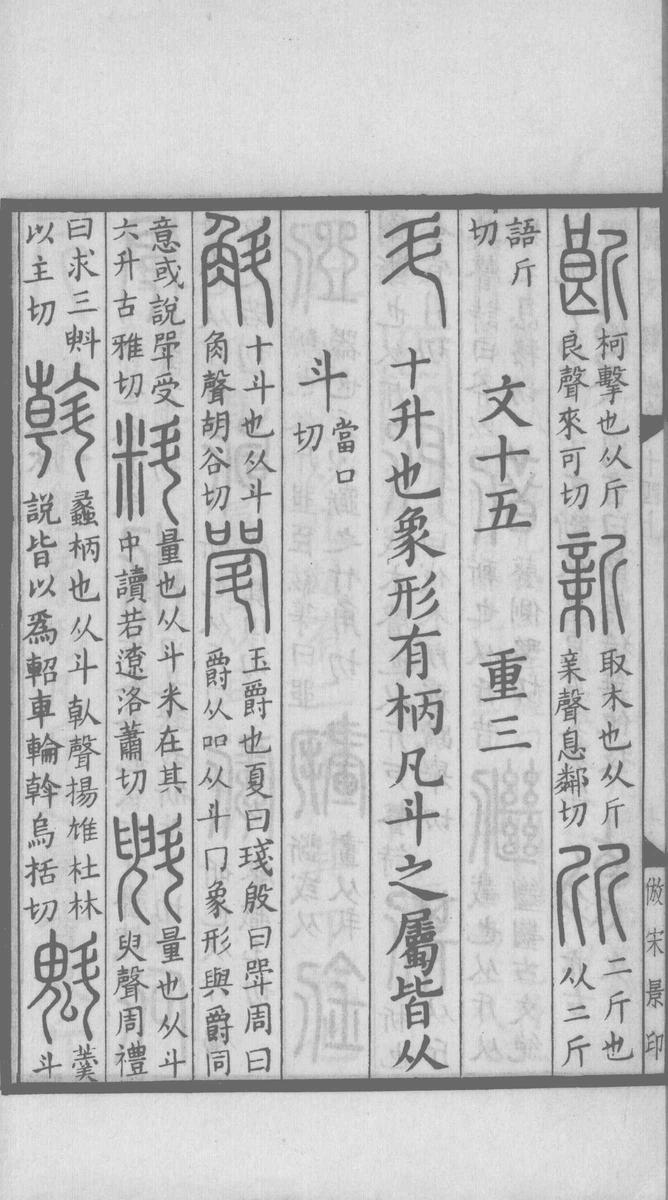 柯擊也从斤良聲來可切 新 取木也从斤亲聲息鄰切 斦 二斤也从二斤
語斤切
文十五 重三
斗 十升也象形有柄凡斗之屬皆从
斗 當口切
斛 十斗也从斗角聲胡谷切 斝 玉爵也夏曰琖殷曰斝周曰爵从吅从斗冂象形與爵同
意或說斝受六升古雅切 料 量也从斗米在其中讀若遼洛蕭切 斞 量也从斗臾聲周禮
曰求三斞以主切 斡 蠡柄也从斗倝聲揚雄杜林說皆以爲軺車輪斡烏括切 魁 羹斗
倣宋景印